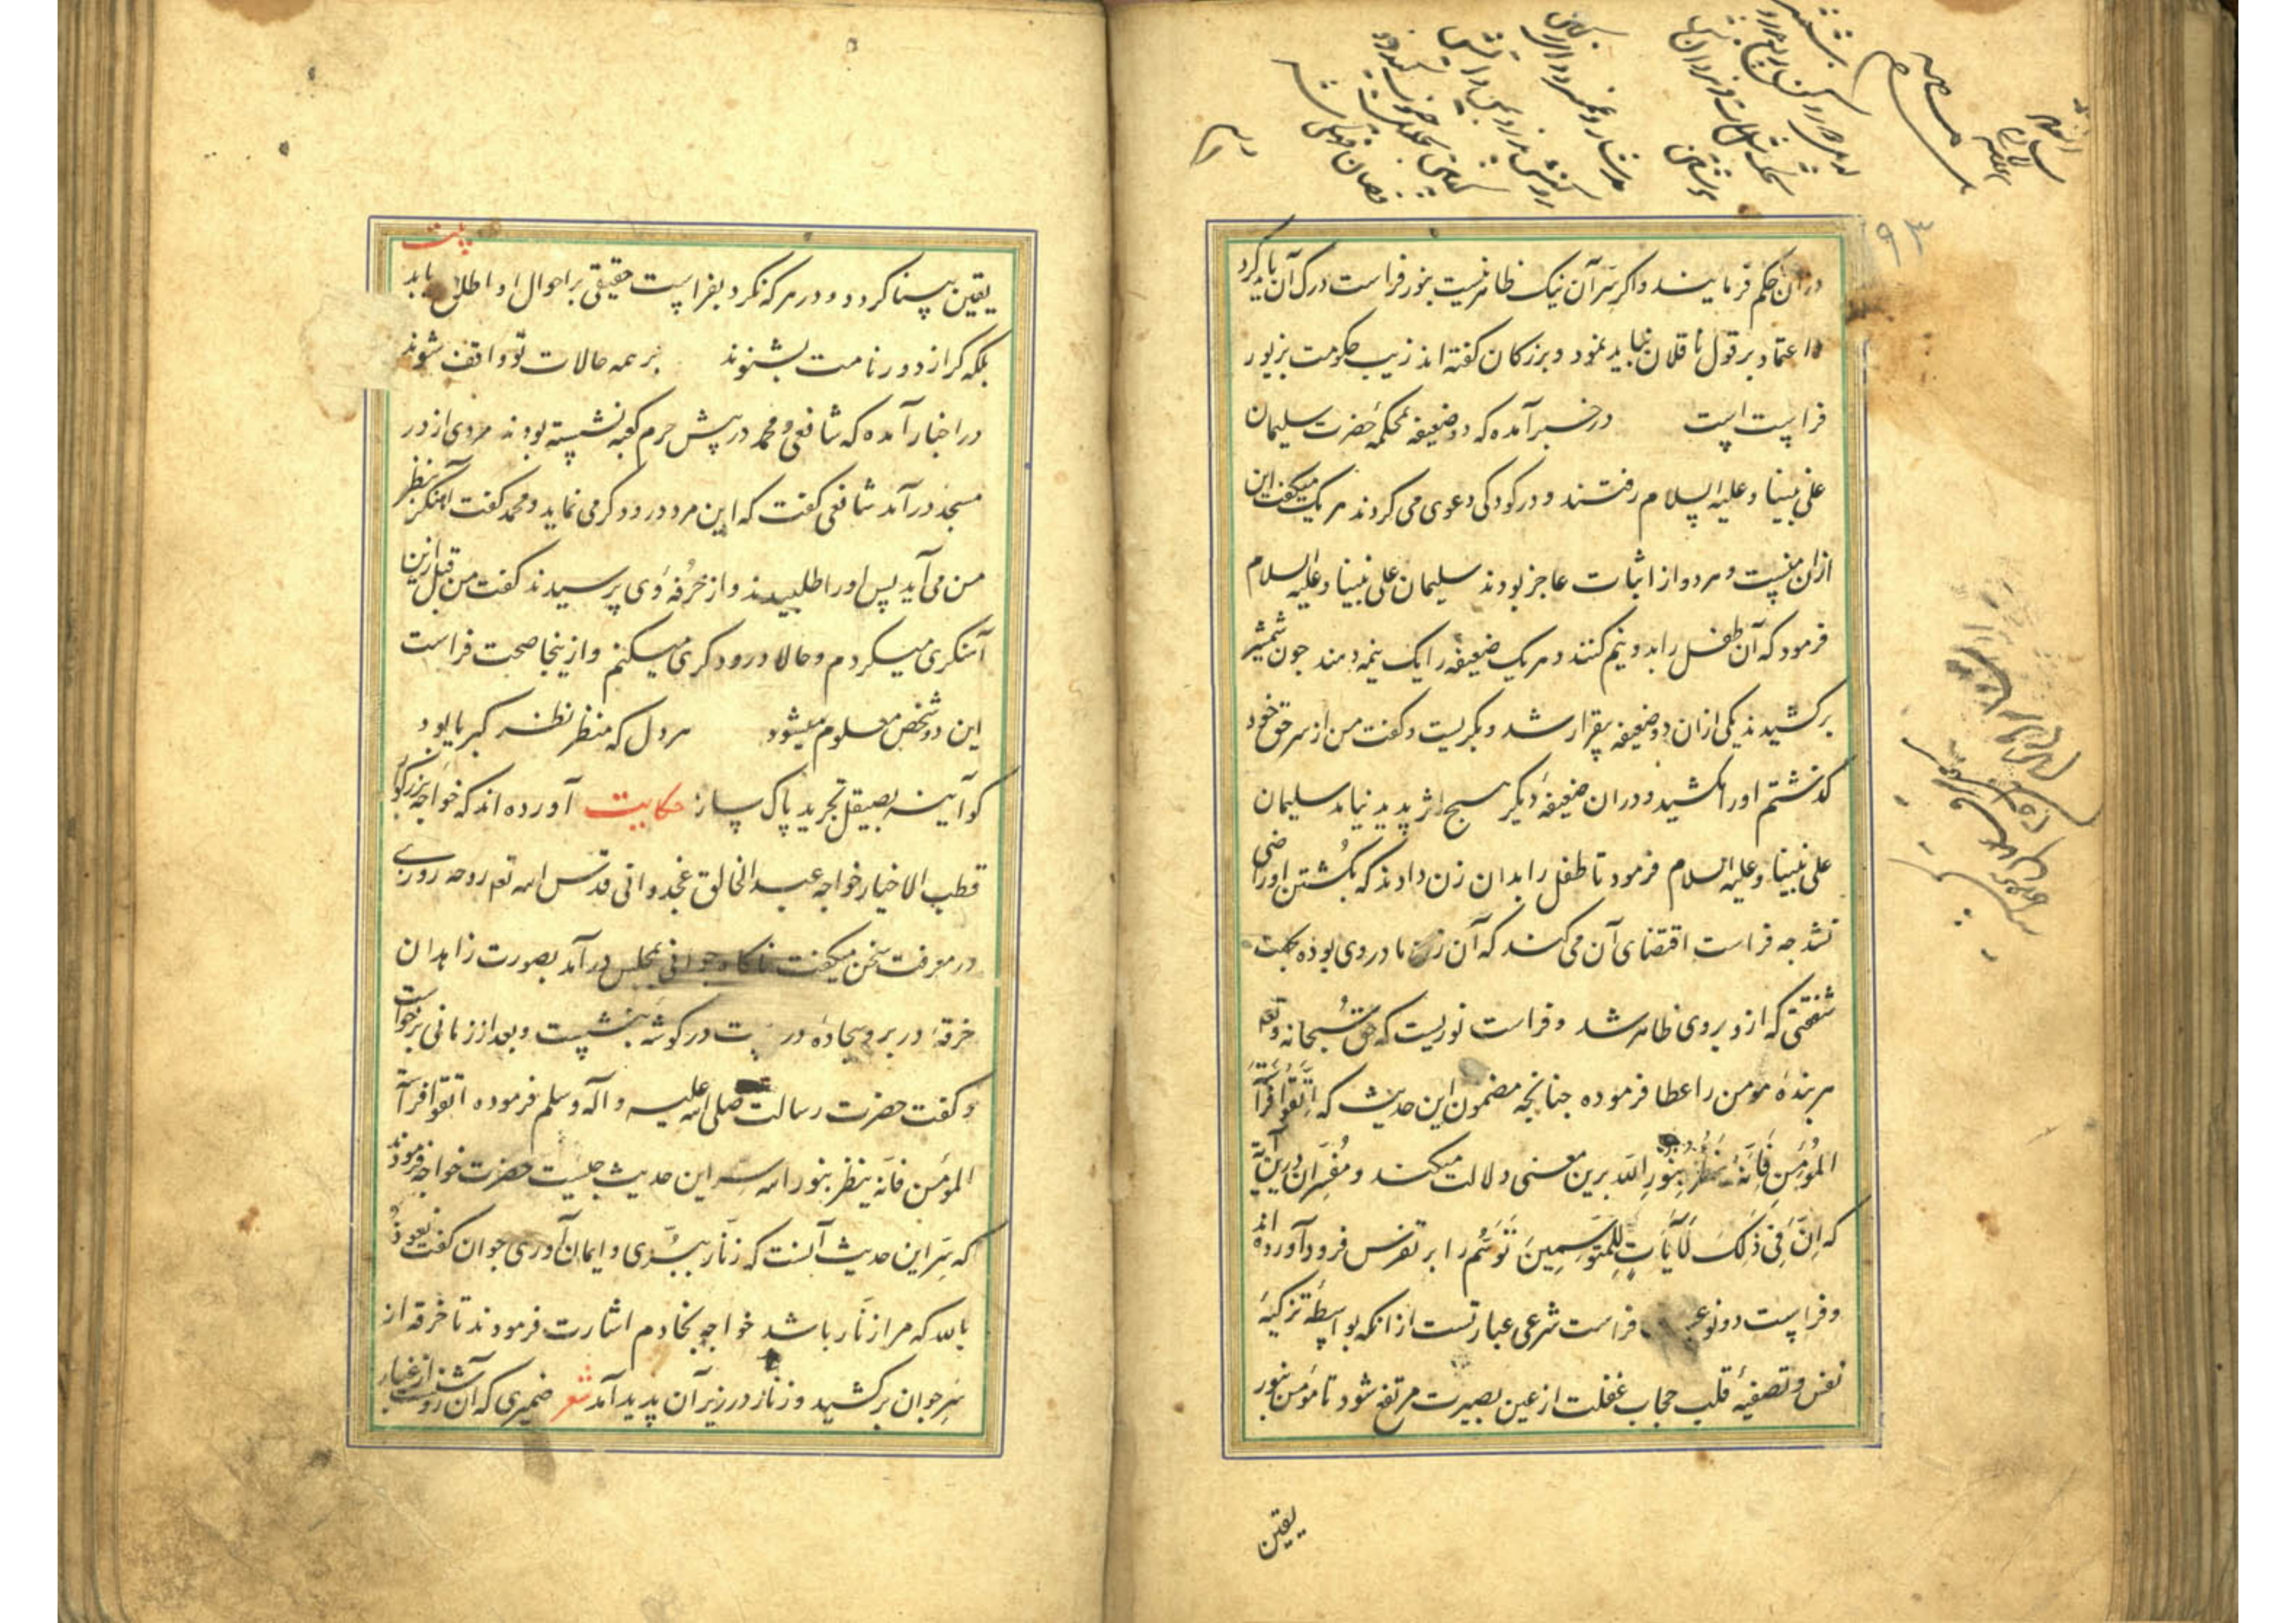 ۹۳
در آن حکم فرمایند و اگر سر آن نیک ظاهر نیست بنور فراست درک آن باید کرد
و اعتماد بر قول ناقلان نباید نمود و بزرکان کفته اند زیب حکومت بزیور
فراست است درخبر آمده که دو ضعیفه بمحکمهٔ حضرت سلیمان
علی نبینا و علیه السلام رفتند و در کودکی دعوی می کردند هر یک میکفت این
ازان منست و هر دو از اثبات عاجز بودند سلیمان علی نبینا و علیه السلام
فرمود که آن طفل را بدو نیم کنند و هر یک ضعیفه را یک نیمه دهند چون شمشیر
برکشیدند یکی ازان دو ضعیفه بیقرار شد و بکریست و کفت من از سر حق خود
کذشتم او را مکشید و دران ضعیفهٔ دیکر هیچ اثر پدید نیامد سلیمان
علی نبینا و علیه السلام فرمود تا طفل را بدان زن دادند که بکُشتن او راضی
نشد چه فراست اقتضای آن می کند که آن زن مادر وی بوده بجهت
شفقتی که ازو بر وی ظاهر شد و فراست نوریست که حق سُبحانه و تعه
هر بندهٔ مؤمن را عطا فرموده چنانچه مضمون این حدیث که اِتَّقوُا فَرآسَةَ
المُؤمِنِ فَاِنَّهُ یَنظُرُ بِنوُرِ اللّه برین معنی دلالت میکند و مُفسِّران درین آیة
که اِنَّ فِی ذَلِکَ لَآیَاتٍ لِلمُتَوَسِّمِینَ تَوَسُّم را بر تفرس فرود آورده اند
و فراست دو نوع فراست شرعی عبارتست ازانکه بواسطهٔ تزکیهٔ
نفس و تصفیهٔ قلب حجاب غفلت از عین بصیرت مرتفع شود تا مؤمن بنور
یقین
یقین بینا کردد و در هر که نکرد بفراست حقیقی بر احوال او اطلاع یابد بیت
بلکه کر از دور نامت بشنوند بر همه حالات تو واقف شوند
در اخبار آمده که شافعی و محمد در پیش حرم کعبه نشسته بودند مردی از در
مسجد درآمد شافعی کفت که این مرد درودکر می نماید و محمد کفت آهنکر بنظر
من می آید پس او را طلبیدند و از حرُفهٔ وی پرسیدند کفت من قبل ازین
آهنکری میکردم و حالا درودکری میکنم و ازینجا صحت فراست
این دو شخص معلوم میشود هر دل که منظر نظر کبریا بود
کو آینه بصیقل تجرید پاک ساز حکایت آورده اند که خواجه بزرکوار
قطب الاخیار خواجه عبد الخالق غجدوانی قدس اسه تعه روحه روزی
در معرفت سخن میکفت ناکاه جوانی بمجلس درآمد بصورت زاهدان
خرقهٔ در بر و سجادهٔ در دست در کوشهٔ بنشست و بعد از زمانی برخواست
و کفت حضرت رسالت صلی اسه علیه و آله و سلم فرموده اتقوا فرآسة
المؤمن فانّه ینظر بنور اسه سر این حدیث چیست حضرت خواجه فرمودند
که سِرّ این حدیث آنست که زنّار ببُرّی و ایمان آوری جوان کفت نعوذُ
بالله که مرا زنّار باشد خواجه بخادم اشارت فرمودند تا خرقه از
سَرِ جوان برکشید و زنار در زیر آن پدید آمد شعر ضمیری که آن روشنست از غبار